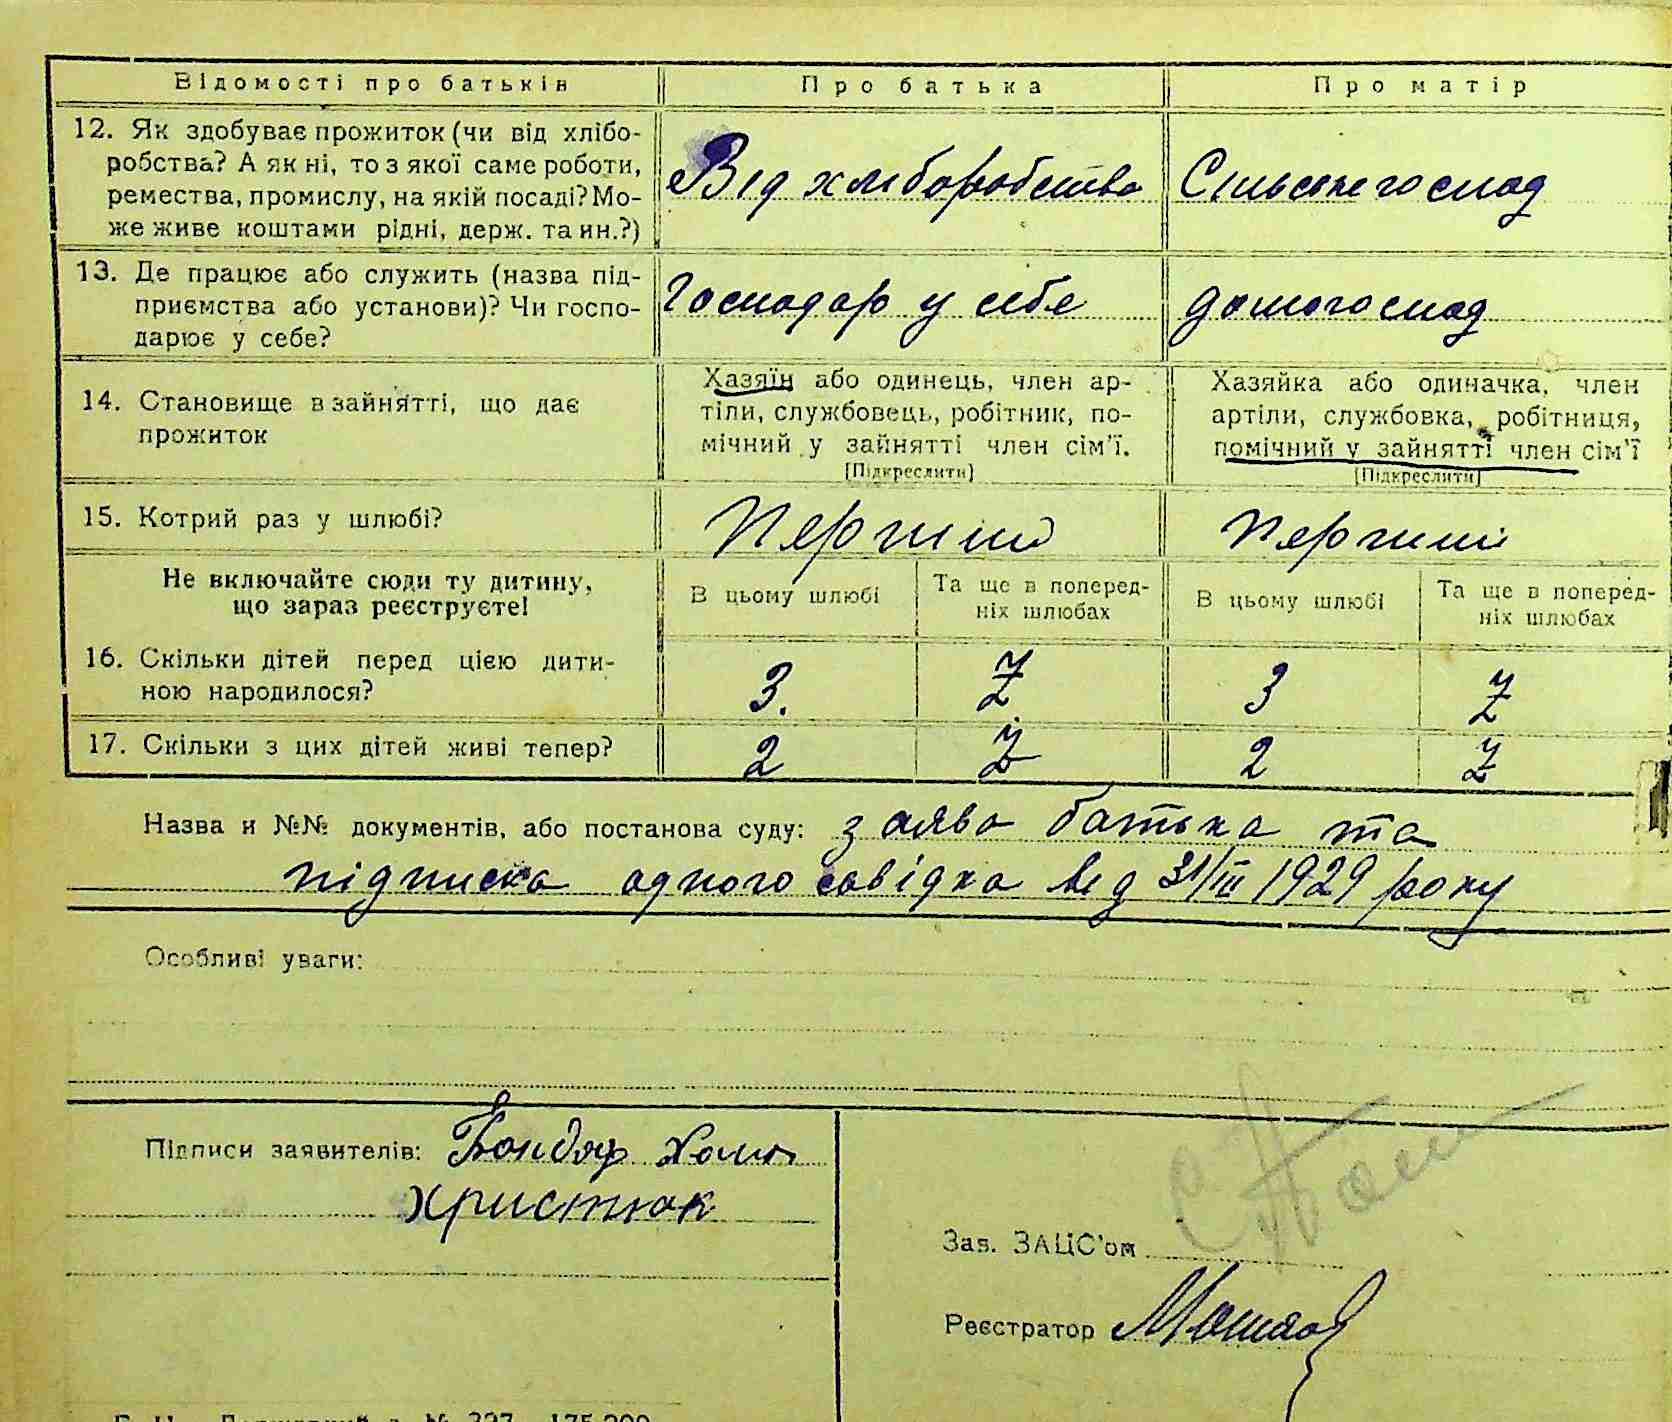 Відомості про батьків
Про батька
Про матір
12. Як здобуває прожиток (чи від хлібо-
робства? А як ні, то з якої саме роботи,
ремества, промислу, на якій посаді? Мо-
же живе коштами рідні, держ. та ин.?)
Від хліборобства
Сільське господ
13. Де працює або служить (назва під-
приємства або установи)? Чи госпо-
дарює у себе?
Господар у себе
домогоспод
14. Становище в зайнятті, що дає
прожиток
Хазяїн або одинець, член ар-
тіли, службовець, робітник, по-
мічний у зайнятті член сім'ї.
[Підкреслити]
Хазяйка або одиначка, член
артіли, службовка, робітниця,
помічний у зайнятті член сім'ї
[Підкреслити]
15. Котрий раз у шлюбі?
Перший
Перший
Не включайте сюди ту дитину,
що зараз реєструєте!
В цьому шлюбі
Та ще в поперед-
ніх шлюбах
В цьому шлюбі
Та ще в поперед-
ніх шлюбах
16. Скільки дітей перед цією дити-
ною народилося?
3. Z 3 Z
17. Скільки з цих дітей живі тепер?
2 Z 2 Z
Назва и №№ документів, або постанова суду: заява батька та
підписка одного свідка від 31/III 1929 року
Особливі уваги:
Підписи заявителів: Бондар Хома
Христюк
Зав. ЗАЦС'ом
Реєстратор